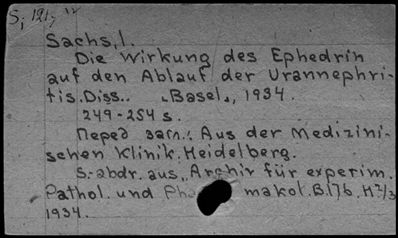 S, 121,
Sachs, I.
Die Wirkung des Ephedrin
auf den Ablauf der Urannephri-
tis. Diss.. „Basel„, 1934.
249-254 s.
Перед загл.: Aus der Medizini-
schen Klinik. Heidelberg.
S.-abdr. aus „Archiv für experim.
Pathol. und Pha makol. B.176. H 2/3
1934.